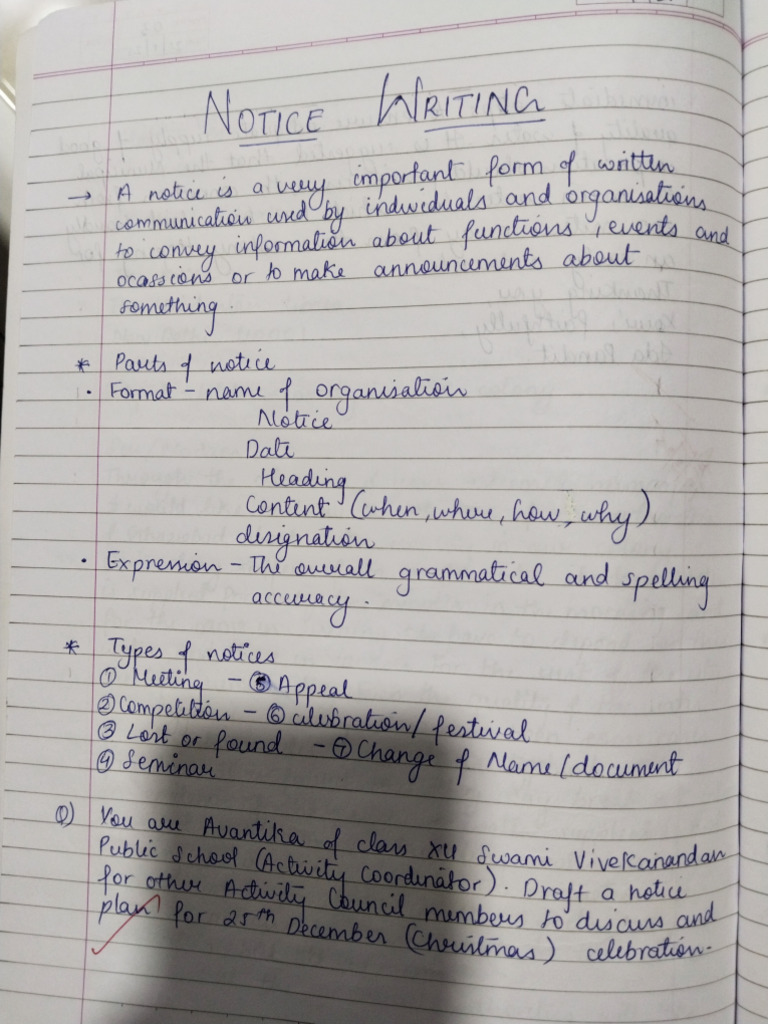 NOTICE WRITING
→ A notice is a very important form of written
communication used by individuals and organisations
to convey information about functions, events and
ocassions or to make announcements about
something.
* Parts of notice
· Format - name of organisation
Notice
Date
Heading
Content (when, where, how, why)
designation
· Expression - The overall grammatical and spelling
accuracy.
* Types of notices
① Meeting - ⑤ Appeal
② Competition - ⑥ celebration/festival
③ Lost or found - ⑦ Change of Name/document
④ Seminar
Q) You are Avantika of class XII Swami Vivekanandan
Public School (Activity Coordinator). Draft a notice
for other Activity Council members to discuss and
plan for 25th December (Christmas) celebration.